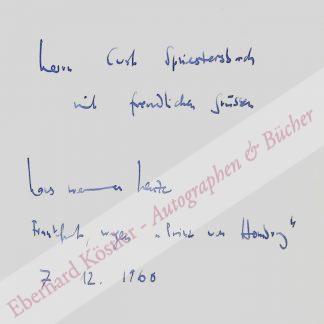 Herrn Curt Spriestersbach
mit freundlichen Grüssen
hans werner henze
Frankfurt, wegen "Prinz von Homburg"
7 12. 1960
Eberhard Köstler - Autographen & Bücher